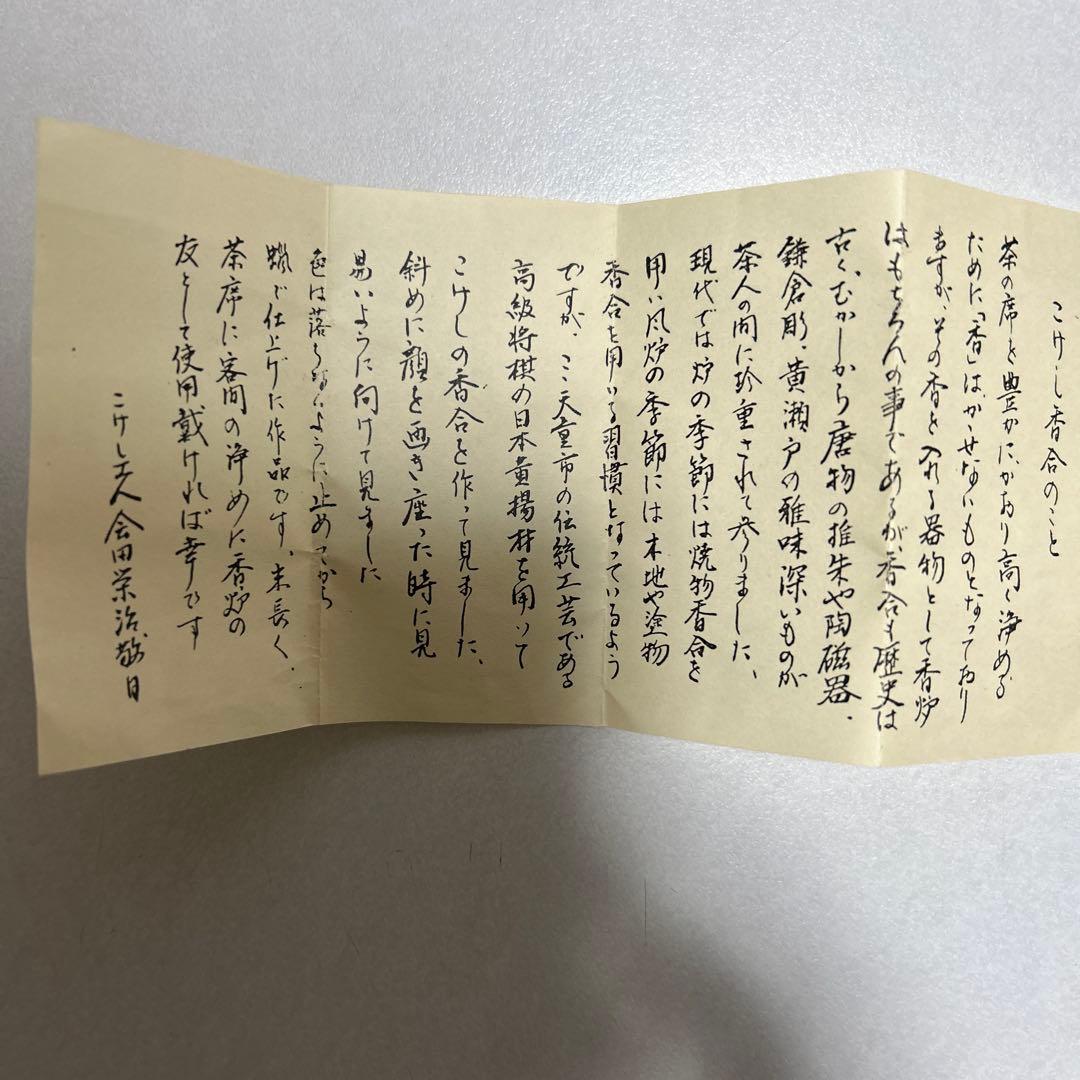 こけし香合のこと
茶の席を豊かにかおり高く浄める
ために「香」は、かゝせないものとなっており
ますが、その香を入れる器物として香炉
はもちろんの事であるが、香合も歴史は
古く、むかしから唐物の推朱や陶磁器、
鎌倉彫、黄瀬戸の雅味深いものが
茶人の間に珍重されて参りました、
現代では炉の季節には焼物香合を
用い風炉の季節には木地や塗物
香合を用いる習慣となっているよう
ですが、こゝ天童市の伝統工芸である
高級将棋の日本黄揚材を用いて
こけしの香合を作って見ました、
斜めに顔を画き座った時に見
易いように向けて見ました
色は落ちないように止めてから
蝋で仕上げた作品です、末長く、
茶席に客間の浄めに香炉の
友として使用戴ければ幸です
こけし工人 会田栄治敬白